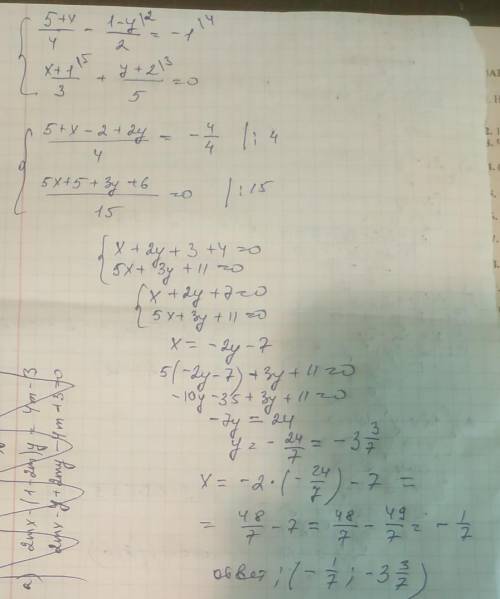 (5+x)/4 - (1-y)/2 \2 = -1 \4
(x+1)/3 \5 + (y+2)/5 \3 = 0
(5+x-2+2y)/4 = -4/4 |:4
(5x+5+3y+6)/15 = 0 |:15
x+2y+3+4=0
5x+3y+11=0
x+2y+7=0
5x+3y+11=0
x=-2y-7
5(-2y-7)+3y+11=0
-10y-35+3y+11=0
-7y=24
y=-24/7=-3 3/7
x=-2·(-24/7)-7=
=48/7-7=48/7-49/7=-1/7
ответ; (-1/7; -3 3/7)
а) 2mx-(1-2m)y=4m-3
2mx-y+2my-4m+3=0